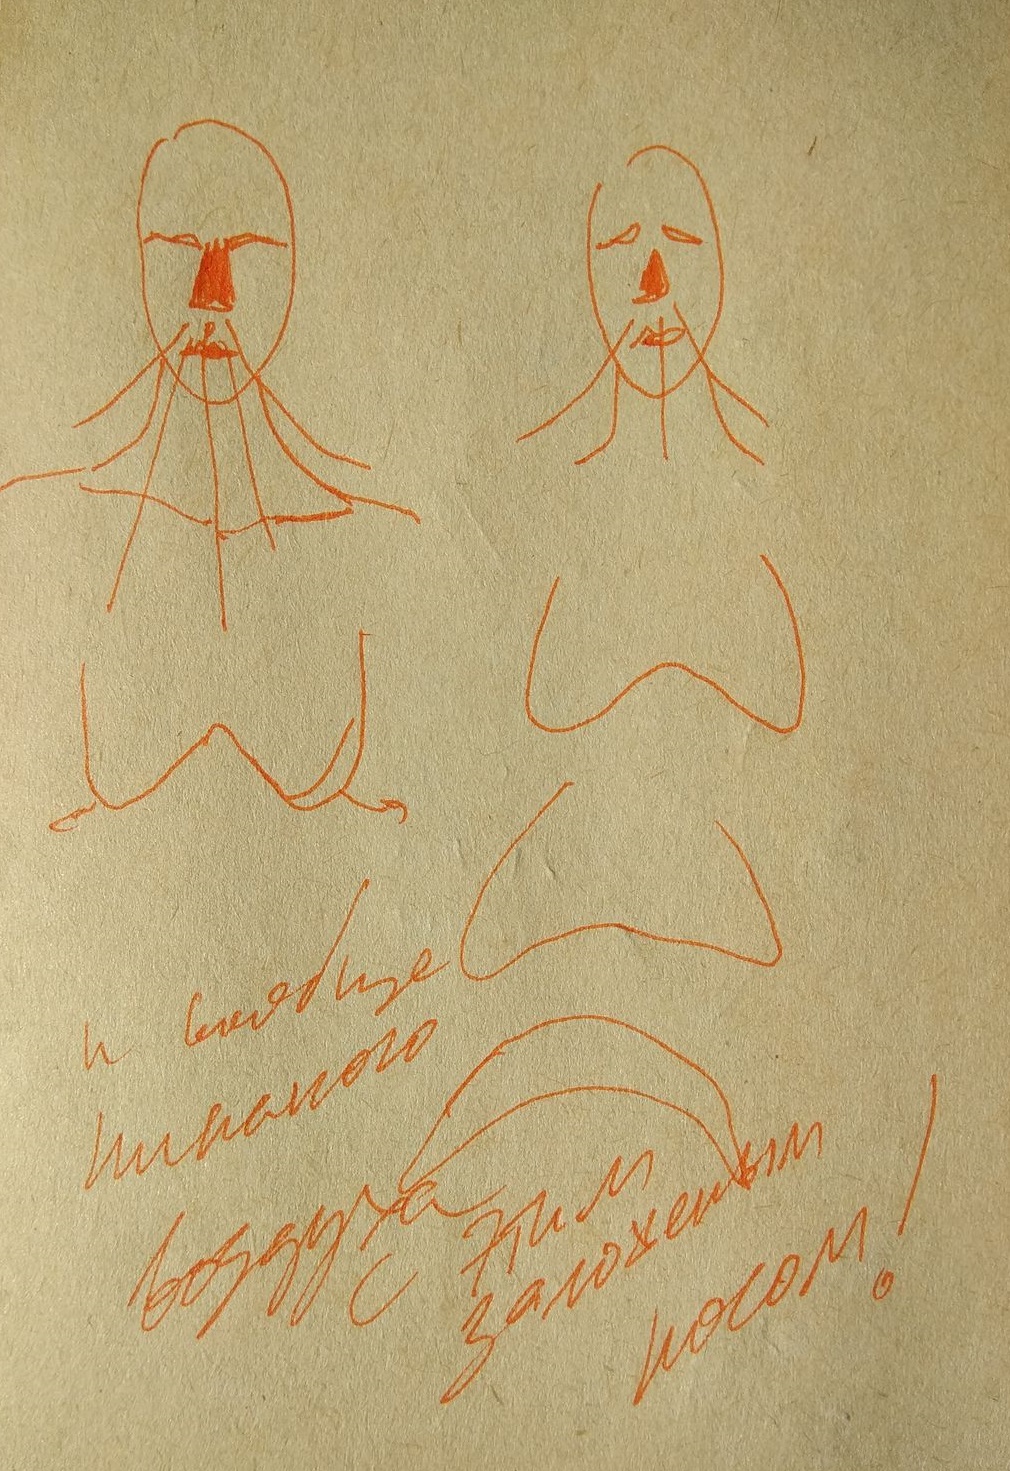 и вообще
никакого
воздуха
с этим
заложеным
носом!